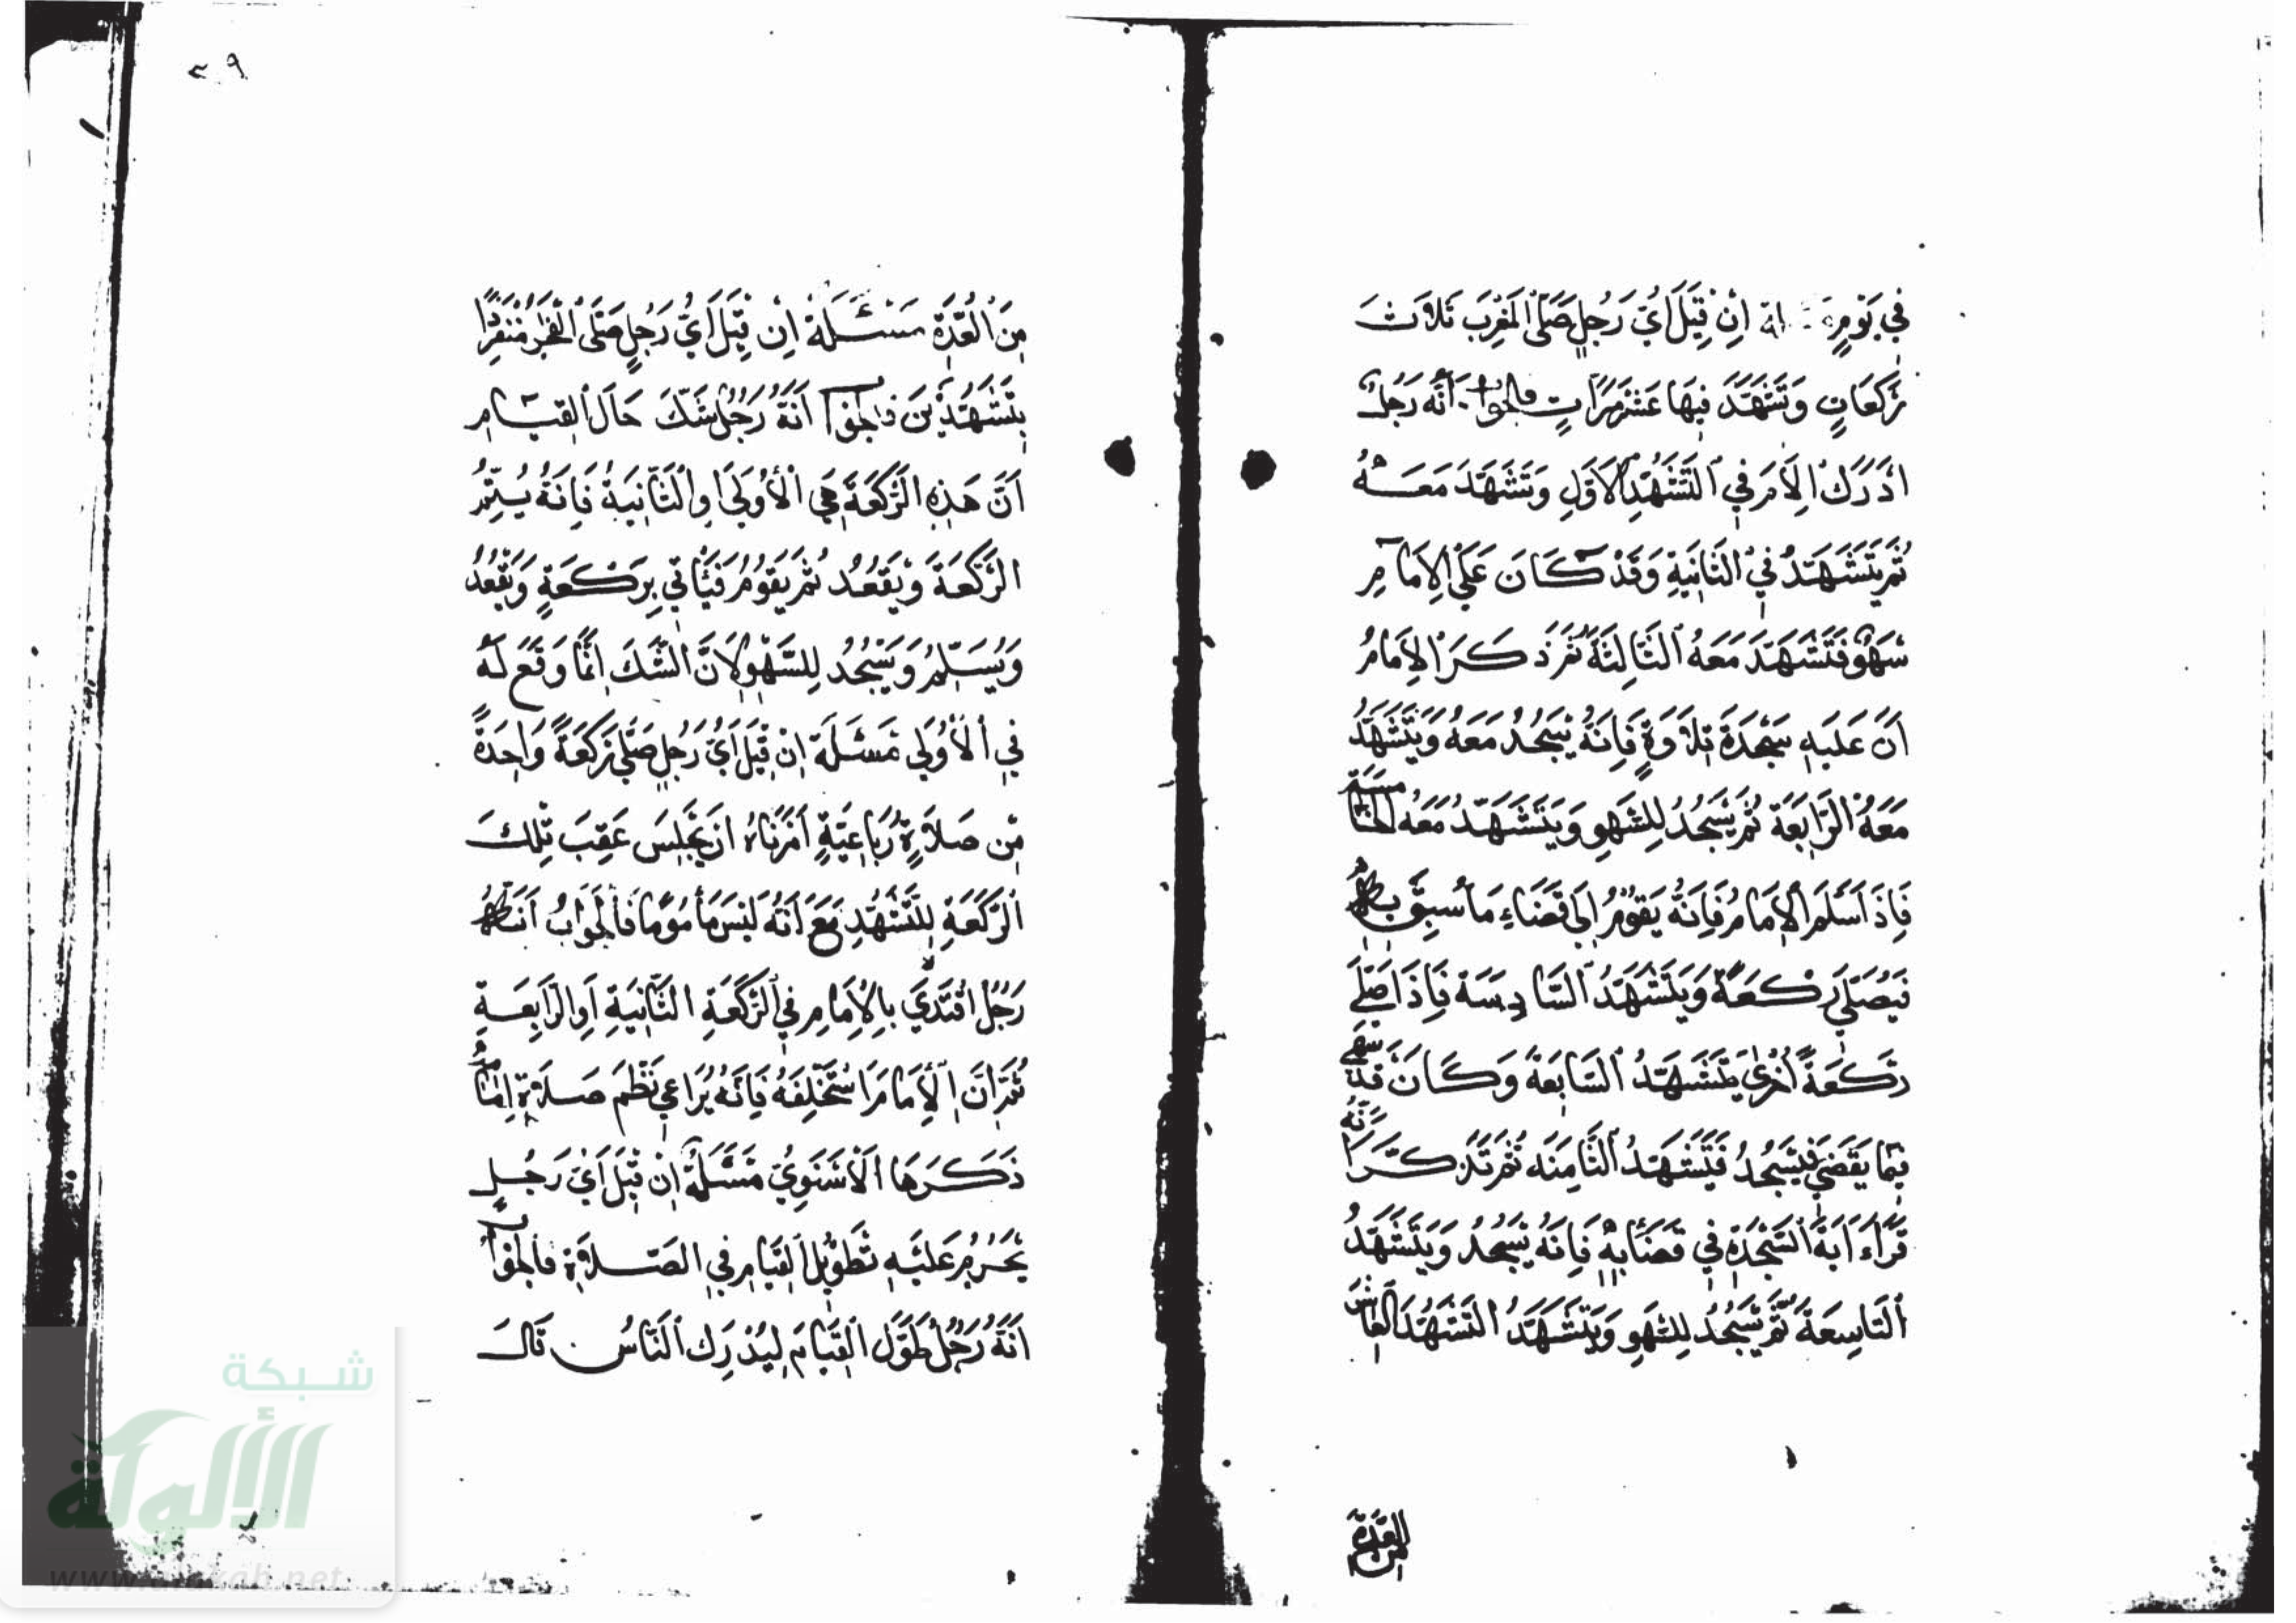 فِي يَوْمٍ إِنْ قِيلَ أَيُّ رَجُلٍ صَلَّى الْمَغْرِبَ ثَلَاثَ
رَكَعَاتٍ وَتَشَهَّدَ فِيهَا عَشْرَ مَرَّاتٍ فالجواب أَنَّهُ رَجُلٌ
ادْرَكَ الإمَامَ فِي التَّشَهُّدِ الْأَوَّلِ وَتَشَهَّدَ مَعَهُ
ثُمَّ يَتَشَهَّدُ فِي الثَّانِيَةِ وَقَدْ كَانَ عَلَى الإِمَامِ
سَهْوٌ فَتَشَهَّدَ مَعَهُ الثَّالِثَةَ ثُمَّ ذَكَرَ الإِمَامُ
أَنَّ عَلَيْهِ سَجْدَةَ تِلَاوَةٍ فَإِنَّهُ يَسْجُدُ مَعَهُ وَيَتَشَهَّدُ
مَعَهُ الرَّابِعَةَ ثُمَّ يَسْجُدُ لِلسَّهْوِ وَيَتَشَهَّدُ مَعَهُ الْخَامِسَةَ
فَإِذَا سَلَّمَ الْإِمَامُ فَإِنَّهُ يَقُومُ إِلَى قَضَاءِ مَا سُبِقَ بِهِ
فَيُصَلِّي رَكْعَةً وَيَتَشَهَّدُ السَّادِسَةَ فَإِذَا صَلَّى
رَكْعَةً أُخْرَى يَتَشَهَّدُ السَّابِعَةَ وَكَانَ قَدْ سَهَى
فِيمَا يَقْضِي فَيَسْجُدُ فَيَتَشَهَّدُ الثَّامِنَةَ ثُمَّ تَذَكَّرَ أَنَّهُ
قَرَاءَ آيَةَ السَّجْدَةِ فِي قَضَائِهِ فَإِنَّهُ يَسْجُدُ وَيَتَشَهَّدُ
التَّاسِعَةَ ثُمَّ يَسْجُدُ لِلسَّهْوِ وَيَتَشَهَّدُ التَّشَهُّدَ الْعَاشِرَ
من العُدَّة
٢٩
مِنَ الْعُدَّةِ مَسْئَلَة إِنْ قِيلَ أَيُّ رَجُلٍ صَلَّى الْفَجْرَ مُنْفَرِدًا
بِتَشَهُّدَيْنِ فالجواب أَنَّهُ رَجُلٌ شَكَّ حَالَ الْقِيَامِ
أَنَّ هَذِهِ الرَّكْعَةَ هِيَ الْأُولَى اوِ الثَّانِيَةُ فَإِنَّهُ يُتِمُّ
الرَّكْعَةَ وَيَقْعُدُ ثُمَّ يَقُومُ فَيَأْتِي بِرَكْعَةٍ وَيَقْعُدُ
وَيُسَلِّمُ وَيَسْجُدُ لِلسَّهْوِ لِأَنَّ الشَّكَّ إِنَّمَا وَقَعَ لَهُ
فِي الْأُولَى مَسْئَلَة إِنْ قِيلَ أَيُّ رَجُلٍ صَلَّى رَكْعَةً وَاحِدَةً
مِنْ صَلَاةٍ رُبَاعِيَّةٍ أَمَرْنَاهُ أَنْ يَجْلِسَ عَقِبَ تِلْكَ
الرَّكْعَةِ لِلتَّشَهُّدِ مَعَ أَنَّهُ لَيْسَ مَأْمُومًا فَالْجَوَابُ أَنَّهُ
رَجُلٌ اقْتَدَى بِالْإِمَامِ فِي الرَّكْعَةِ الثَّانِيَةِ أَوِ الرَّابِعَةِ
ثُمَّ أَنَّ الْإِمَامَ اسْتَخْلَفَهُ فَإِنَّهُ يُرَاعِي نَظْمَ صَلَاةِ إِمَامِهِ
ذَكَرَهَا الْأَسْنَوِيُّ مَسْئَلَة إِنْ قِيلَ أَيُّ رَجُلٍ
يَحْرُمُ عَلَيْهِ تَطْوِيلُ الْقِيَامِ فِي الصَّلَاةِ فالجواب
أَنَّهُ رَجُلٌ طَوَّلَ الْقِيَامَ لِيُدْرِكَ النَّاسُ قَالَ
شبكة
الألوكة
www.alukah.net